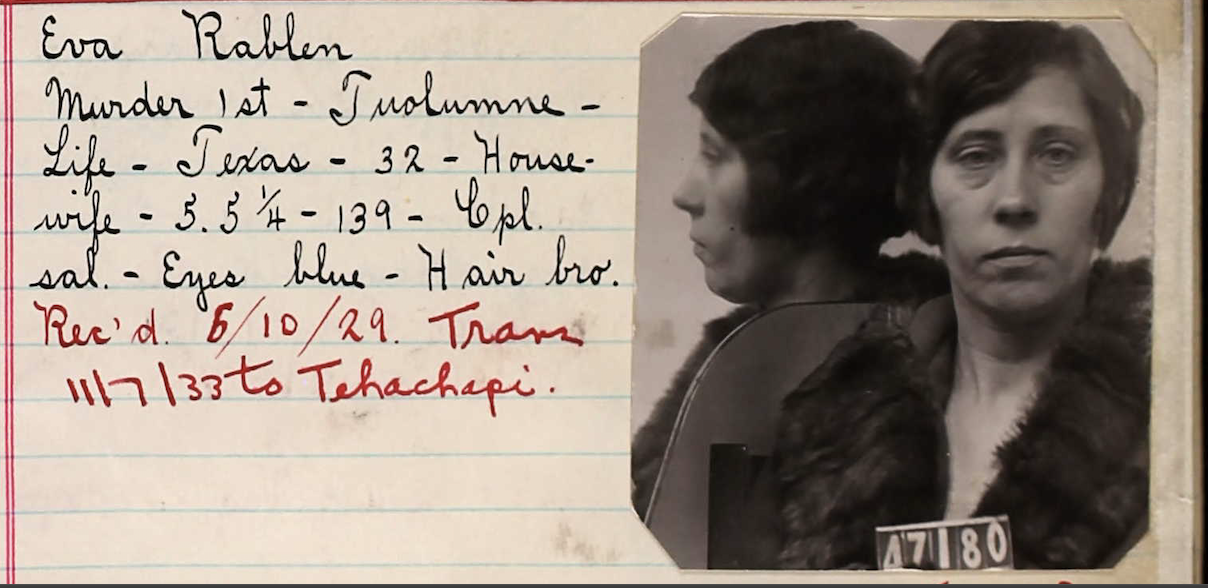 Eva Rablen
Murder 1st - Tuolumne -
Life - Texas - 32 - House-
wife - 5.5 1/4 - 139 - Cpl.
sal. - Eyes blue - Hair bro.
Rec'd. 5/10/29. Trans
11/7/33 to Tehachapi.
47180